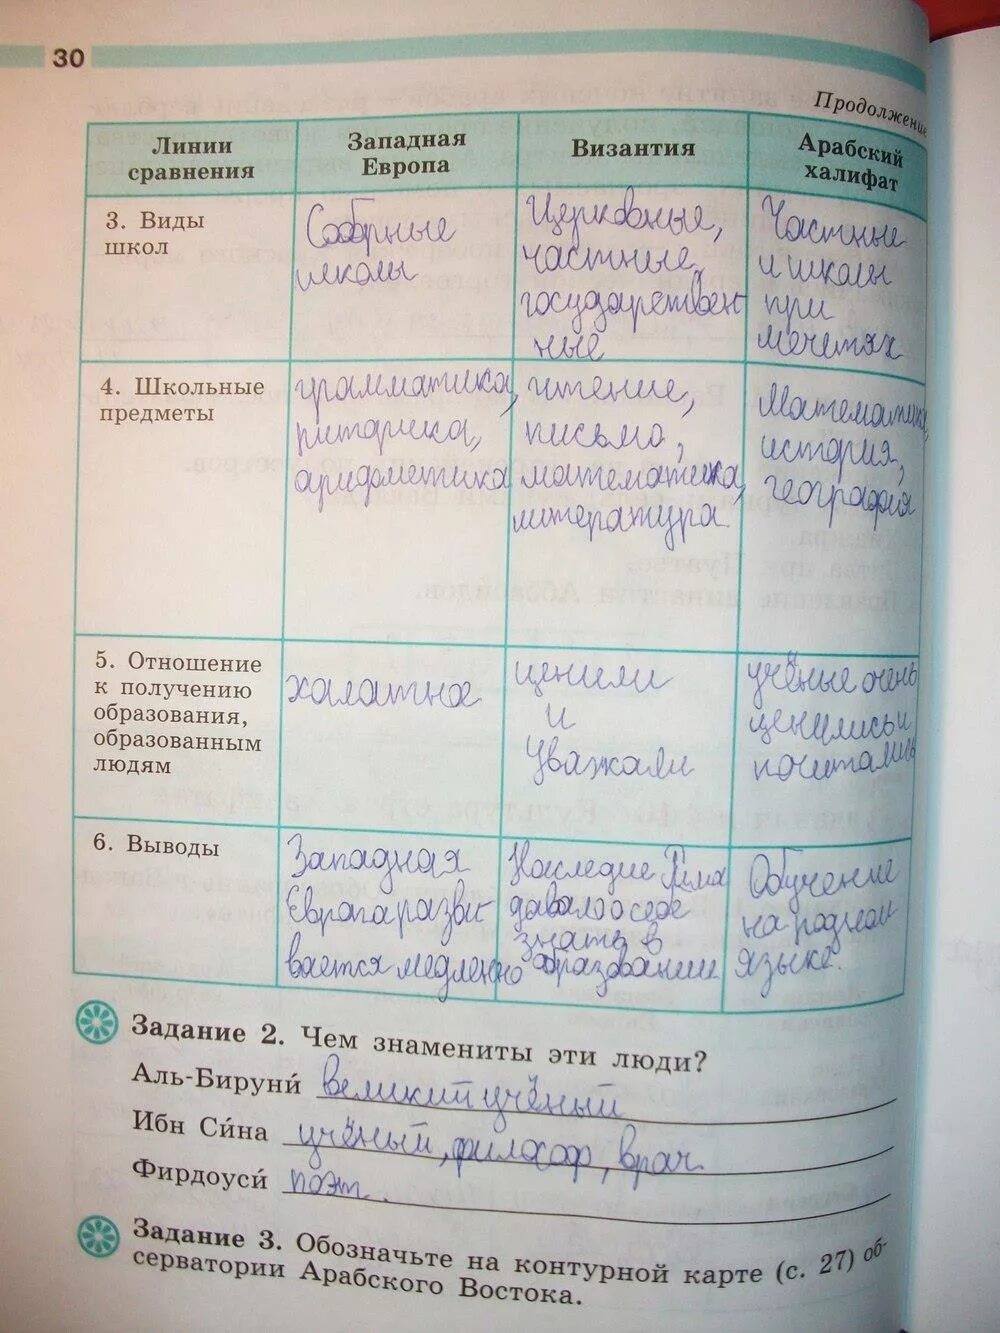 30
Продолжение
Линии сравнения
Западная Европа
Византия
Арабский халифат
3. Виды школ
Соборные школы
Церковные, частные, государствен ные
Частные и школы при мечетях
4. Школьные предметы
грамматика, риторика, арифметика
чтение, письмо, математика, литература
Математика, история, география
5. Отношение к получению образования, образованным людям
халатное
ценили и уважали
учёные очень ценились и почитались
6. Выводы
Западная Европа разви вается медленно
Наследие Рима давало о себе знать в образовании
Обучение на родном языке.
Задание 2. Чем знамениты эти люди?
Аль-Бируни́ великий учёный
Ибн Си́на учёный, философ, врач
Фирдоуси́ поэт.
Задание 3. Обозначьте на контурной карте (с. 27) об-
серватории Арабского Востока.